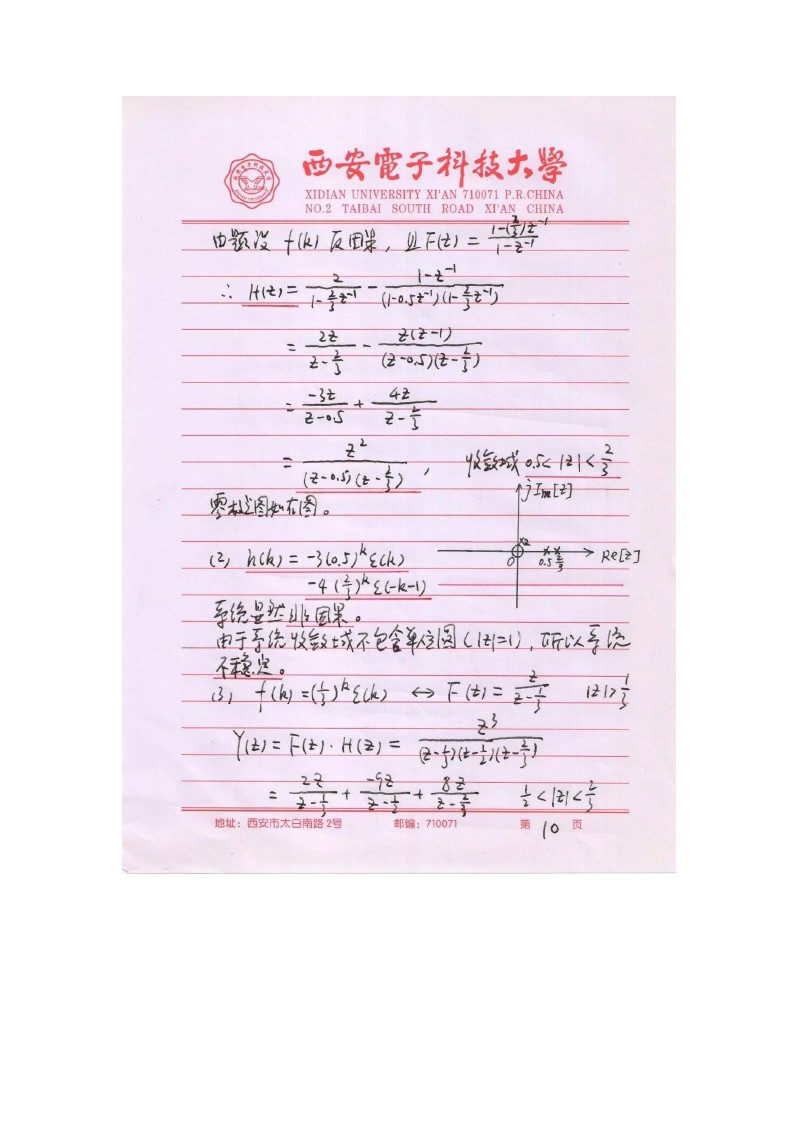 西安電子科技大學
XIDIAN UNIVERSITY XI'AN 710071 P.R.CHINA
NO.2 TAIBAI SOUTH ROAD XI'AN CHINA
由题设 f(k) 反因果, 且 F(z) = (1-(2/3)z^-1)/(1-z^-1)
∴ H(z) = 2/(1-2/3 z^-1) - (1-z^-1)/((1-0.5z^-1)(1-2/3 z^-1))
= 2z/(z-2/3) - z(z-1)/((z-0.5)(z-2/3))
= -3z/(z-0.5) + 4z/(z-2/3)
= z^2/((z-0.5)(z-2/3)), 收敛域 0.5<|z|<2/3
零极点图如右图。
jIm[z]
x2
0
0.5 2/3
Re[z]
(2) h(k) = -3(0.5)^k ε(k)
-4(2/3)^k ε(-k-1)
系统显然非因果。
由于系统收敛域不包含单位圆(|z|=1), 所以系统
不稳定。
(3) f(k) = (1/3)^k ε(k) ↔ F(z) = z/(z-1/3) |z|>1/3
Y(z) = F(z)·H(z) = z^3/((z-1/3)(z-1/2)(z-2/3))
= 2z/(z-1/3) + -9z/(z-1/2) + 8z/(z-2/3) 1/2<|z|<2/3
地址: 西安市太白南路2号 邮编: 710071 第 10 页